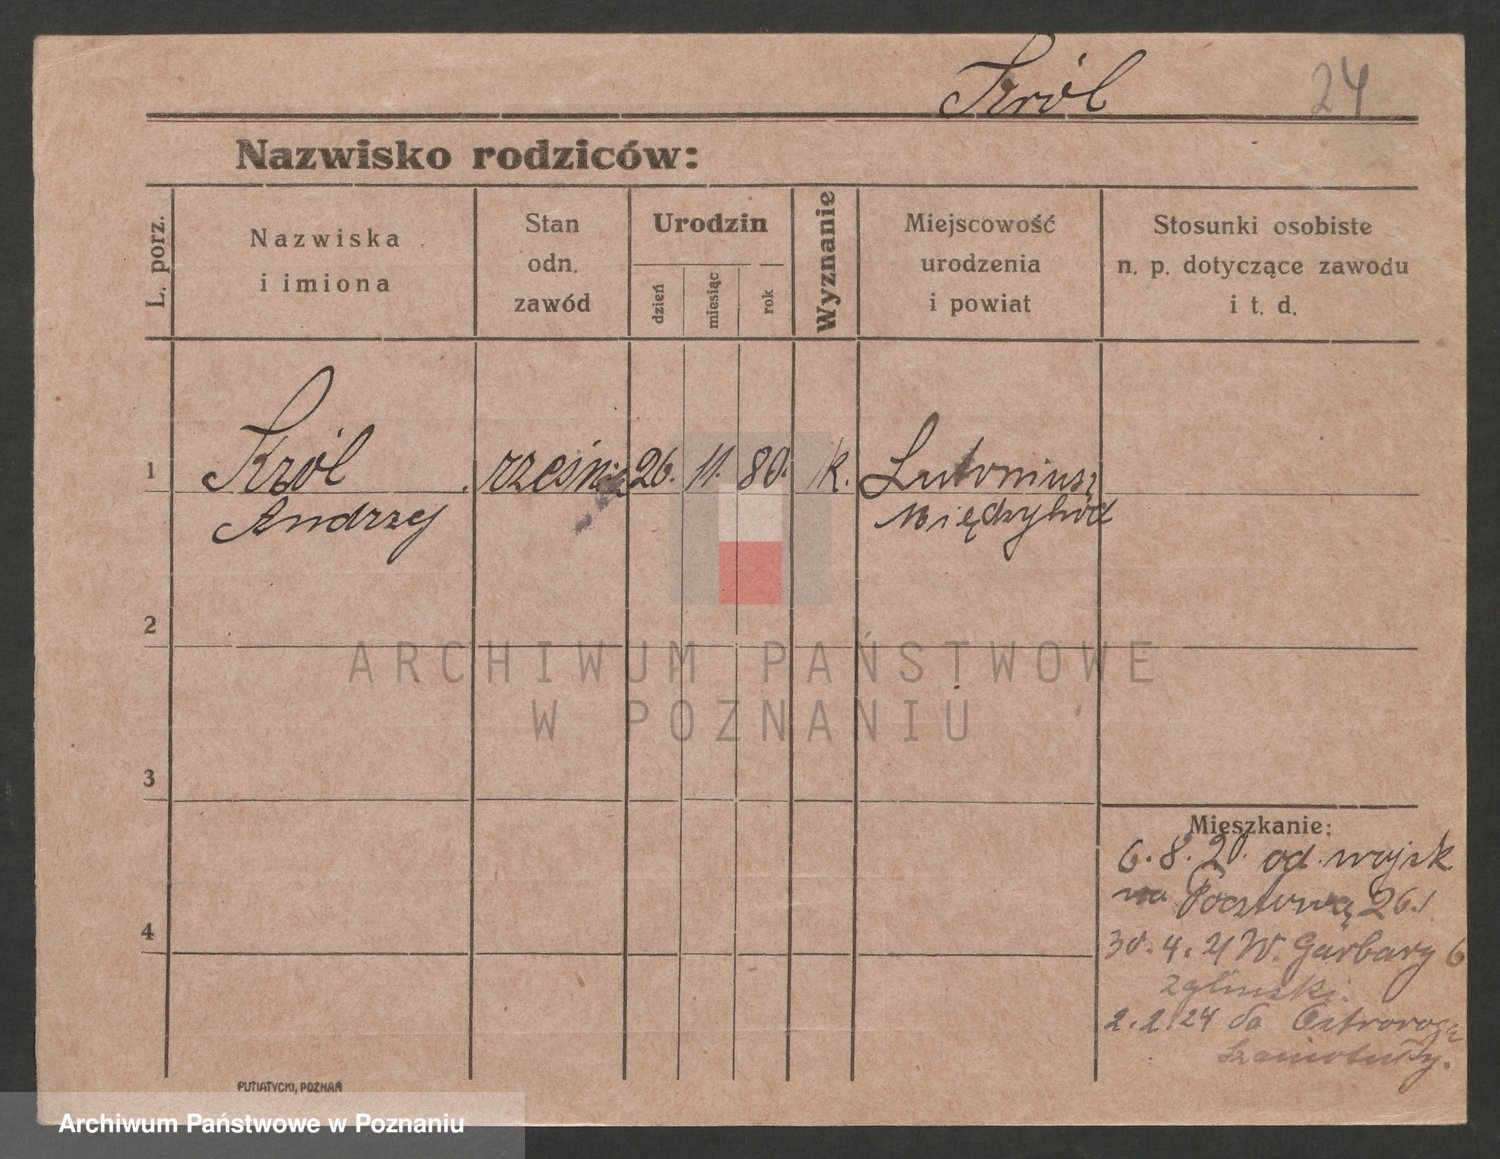 Król 24
Nazwisko rodziców:
L. porz.
Nazwiska
i imiona
Stan
odn.
zawód
Urodzin
dzień
miesiąc
rok
Wyznanie
Miejscowość
urodzenia
i powiat
Stosunki osobiste
n. p. dotyczące zawodu
i t. d.
1 Król rzeźnik 26. 11. 80. k. Lutomiusz
Andrzej Międzychód
2
ARCHIWUM PAŃSTWOWE
W POZNANIU
3
Mieszkanie:
6. 8. 20. od wojsk
na Pocztową 26.
4
30. 4. 21 W. Garbary 6
Zgliński.
2. 2. 24 do Ostroroga
Szamotuły.
PUTIATYCKI, POZNAŃ
Archiwum Państwowe w Poznaniu